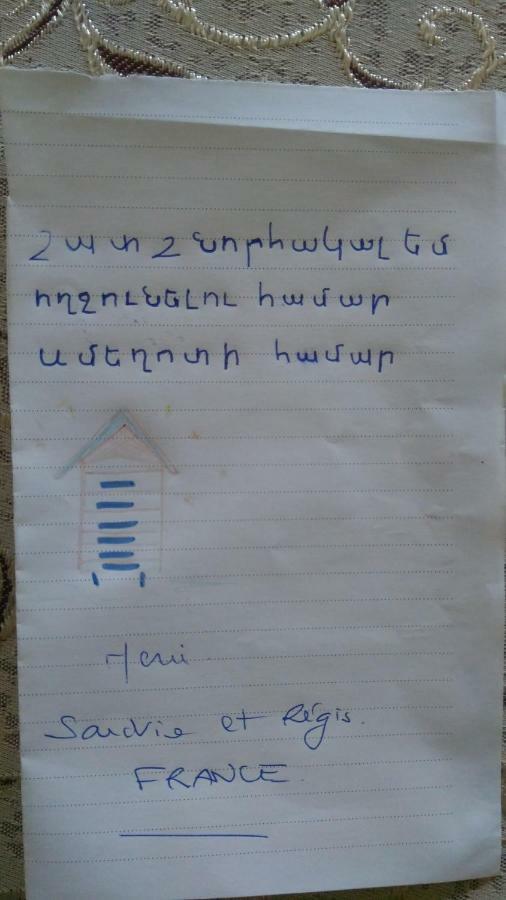 շատ շնորհակալ եմ
ողջունելու համար
ամեղոտի համար
Merci
et Régis.
FRANCE